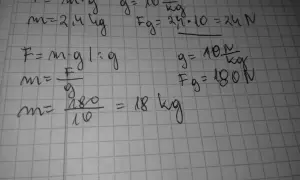 g = 10 N/kg
m = 2,4 kg Fg = 2,4 · 10 = 24 N
F = m · g | : g g = 10 N/kg
m = F/g Fg = 180 N
m = 180/10 = 18 kg